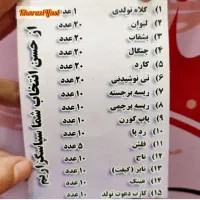 KharazYfast
۱) کلاه تولدی ۱ عدد
۲) لیوان ۲۰ عدد
۳) بشقاب ۲۰ عدد
۴) چنگال ۲۰ عدد
۵) کارد ۲۰ عدد
۶) نی نوشیدنی ۲۰ عدد
۷) ریسه برجسته ۱۰ عدد
۸) ریسه پرچمی ۱۰ عدد
۹) پاپ کورن ۱۰ عدد
۱۰) رد پا ۱۰ عدد
۱۱) فلش ۵ عدد
۱۲) تاج ۱۰ عدد
۱۳) تاپر (گیفت) ۱۰ عدد
۱۴) عینک ۱۰ عدد
۱۵) کارت دعوت تولد ۱۰ عدد
از حسن انتخاب شما سپاسگزاریم